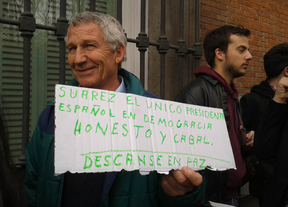 SUAREZ EL UNICO PRESIDENTE
ESPAÑOL EN DEMOGRACIA
HONESTO Y CABAL.
DESCANSE EN PAZ